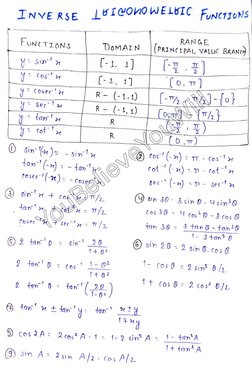 INVERSE TRIGONOMETRIC FUNCTIONS
FUNCTIONS DOMAIN RANGE (PRINCIPAL VALUE BRANCH)
y = sin⁻¹ x [-1, 1] [-π/2, π/2]
y = cos⁻¹ x [-1, 1] [0, π]
y = cosec⁻¹ x R - (-1,1) [-π/2, π/2] - {0}
y = sec⁻¹ x R - (-1,1) [0, π]
y = tan⁻¹ x R
y = cot⁻¹ x R (0, π)
① sin⁻¹(-x) = - sin⁻¹ x
tan⁻¹(-x) = - tan⁻¹ x
cosec⁻¹(-x) = - cosec⁻¹ x
② cos⁻¹(-x) = π - cos⁻¹ x
cot⁻¹(-x) = π - cot⁻¹ x
sec⁻¹(-x) = π - sec⁻¹ x
③ sin⁻¹ x + cos⁻¹ x = π/2
tan⁻¹ x + cot⁻¹ x = π/2
cosec⁻¹ x + sec⁻¹ x = π/2
④ sin 3θ = 3 sin θ - 4 sin³ θ
cos 3θ = 4 cos³ θ - 3 cos θ
tan 3θ = 3 tan θ - tan³ θ / 1 - 3 tan² θ
⑤ 2 tan⁻¹ θ = sin⁻¹ 2θ / 1 + θ²
2 tan⁻¹ θ = cos⁻¹ 1 - θ² / 1 + θ²
2 tan⁻¹ θ = tan⁻¹ (2θ / 1 - θ²)
⑥ sin 2θ = 2 sin θ . cos θ
1 - cos θ = 2 sin² θ/2
1 + cos θ = 2 cos² θ/2
⑦ tan⁻¹ x ± tan⁻¹ y = tan⁻¹ x ± y / 1 ∓ xy
⑧ cos 2A = 2 cos² A - 1 = 1 - 2 sin² A = 1 - tan² A / 1 + tan² A
⑨ sin A = 2 sin A/2 . cos A/2
YouBelieveYouWin